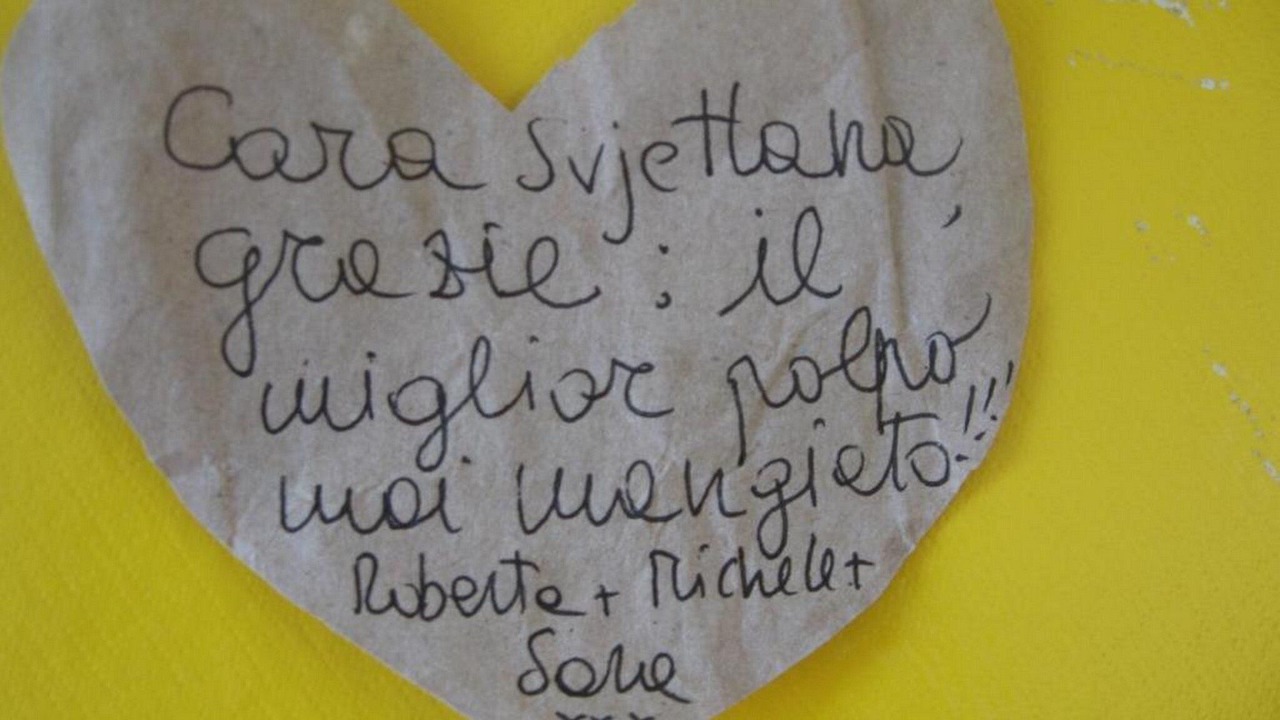 Cara Svjetlana,
grazie: il
miglior polpo
mai mangiato!!
Roberta + Michele +
Sara
xxx